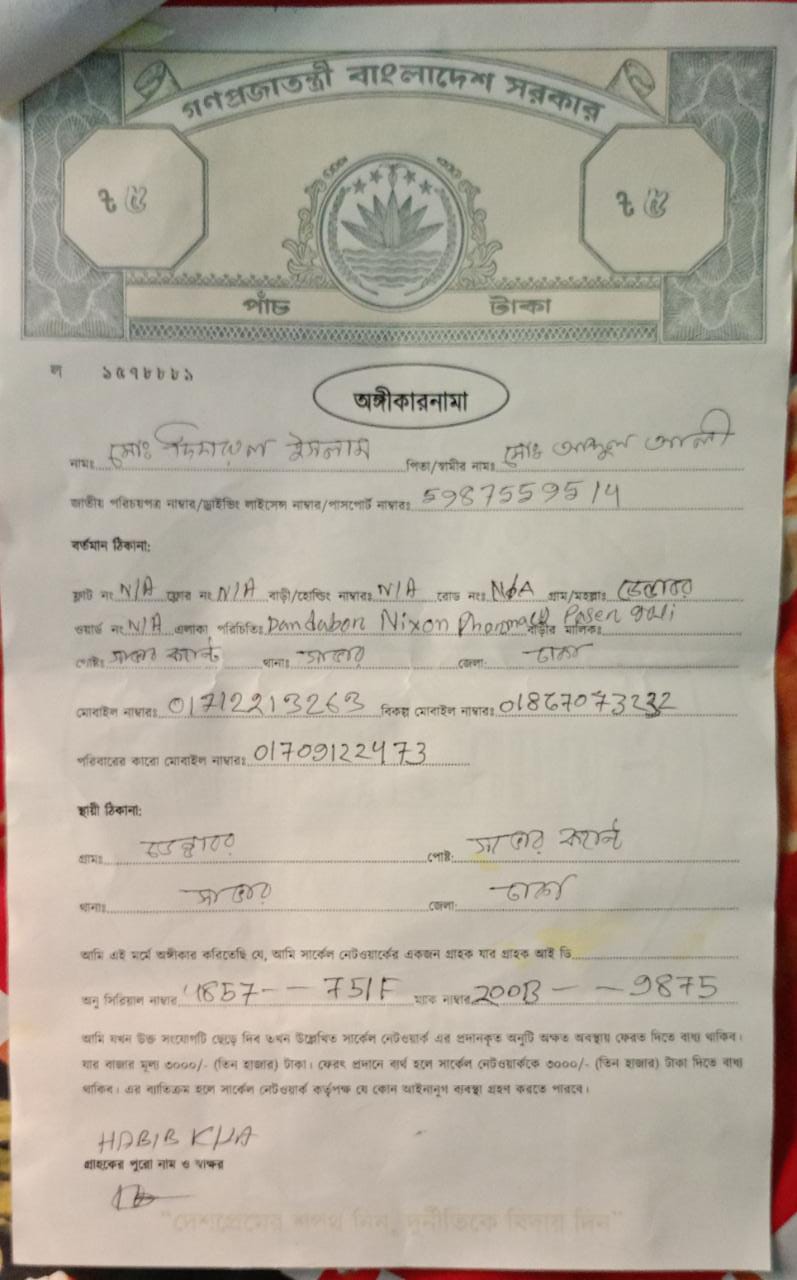 গণপ্রজাতন্ত্রী বাংলাদেশ সরকার
৳ ৫ ৳ ৫
পাঁচ টাকা
ল ১৫৭৮৮৮১
অঙ্গীকারনামা
নামঃ মোঃ ইসলাম পিতা/স্বামীর নামঃ মোঃ আব্দুল আলী
জাতীয় পরিচয়পত্র নাম্বার/ড্রাইভিং লাইসেন্স নাম্বার/পাসপোর্ট নাম্বারঃ 5987559514
বর্তমান ঠিকানা:
ফ্লাট নং N/A ফ্লোর নং N/A বাড়ী/হোল্ডিং নাম্বারঃ N/A রোড নংঃ N/A গ্রাম/মহল্লাঃ ডেন্ডাবর
ওয়ার্ড নং N/A এলাকা পরিচিতিঃ Dandabor Nixon Pharmacy Paser goli বাড়ীর মালিকঃ
পোষ্টঃ সাভার ক্যান্ট থানাঃ সাভার জেলা: ঢাকা
মোবাইল নাম্বারঃ 01712213263 বিকল্প মোবাইল নাম্বারঃ 01867073232
পরিবারের কারো মোবাইল নাম্বারঃ 01709122473
স্থায়ী ঠিকানা:
গ্রামঃ ডেন্ডাবর পোষ্ট: সাভার ক্যান্ট
থানাঃ সাভার জেলা: ঢাকা
আমি এই মর্মে অঙ্গীকার করিতেছি যে, আমি সার্কেল নেটওয়ার্কের একজন গ্রাহক যার গ্রাহক আই ডি
অনু সিরিয়াল নাম্বার 4857-- 751F ম্যাক নাম্বার 200B - - 9875
আমি যখন উক্ত সংযোগটি ছেড়ে দিব তখন উল্লেখিত সার্কেল নেটওয়ার্ক এর প্রদানকৃত অনুটি অক্ষত অবস্থায় ফেরত দিতে বাধ্য থাকিব।
যার বাজার মূল্য ৩০০০/- (তিন হাজার) টাকা। ফেরৎ প্রদানে ব্যর্থ হলে সার্কেল নেটওয়ার্ককে ৩০০০/- (তিন হাজার) টাকা দিতে বাধ্য
থাকিব। এর ব্যতিক্রম হলে সার্কেল নেটওয়ার্ক কর্তৃপক্ষ যে কোন আইনানুগ ব্যবস্থা গ্রহণ করতে পারবে।
HABIB KHA
গ্রাহকের পুরো নাম ও স্বাক্ষর
"দেশপ্রেমের শপথ নিন, দুর্নীতিকে বিদায় দিন"